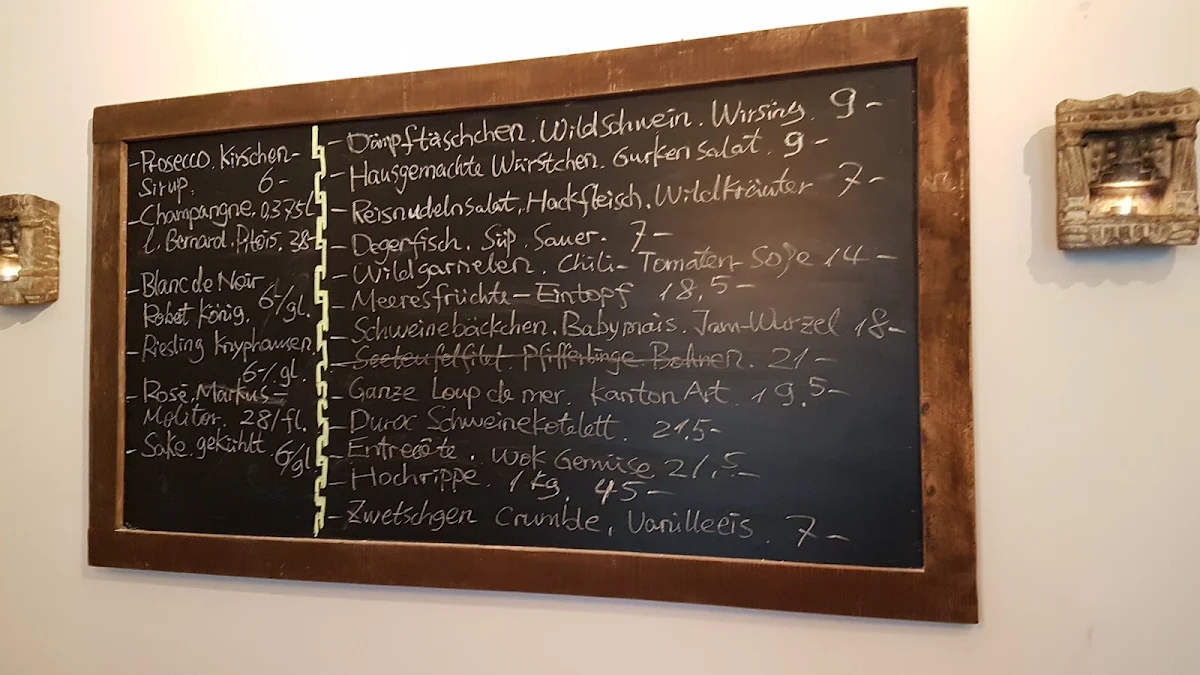 - Prosecco. Kirschen-
Sirup. 6-
- Champangne. 0,375l
l. Bernard. Pitois. 38-
- Blanc de Noir
Robet König. 6-/gl.
- Riesling Knyphausen
6-/.gl.
- Rosé. Markus-
Molitor. 28/fl.
- Sake. gekühlt 6/gl
- Dämpftäschchen. Wildschwein. Wirsing. 9-
- Hausgemachte Würstchen. Gurken Salat. 9-
- Reisnudelnsalat, Hackfleisch. Wildkräuter 7-
- Degenfisch. Süp. Sauer. 7-
- Wildgarnelen. Chili- Tomaten-Soße 14-
- Meeresfrüchte-Eintopf 18,5-
- Schweinebäckchen. Babymais. Jam-Wurzel 18-
- Seeteufelfilet. Pfifferlinge. Bohnen. 21-
- Ganze Loup de mer. Kanton Art. 19,5-
- Duroc Schweinekotelett. 21,5-
- Entrecôte. Wok Gemüse 21,5-
- Hochrippe. 1 kg. 45-
- Zwetschgen Crumble, Vanilleeis. 7-